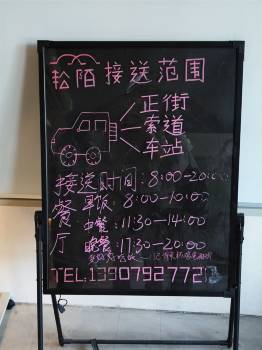 松陌接送范围
正街
索道
车站
接送时间:8:00-20:00
餐厅
早饭:8:00-10:00
中餐:11:30-14:00
晚餐:17:30-20:00
TEL:1390792772